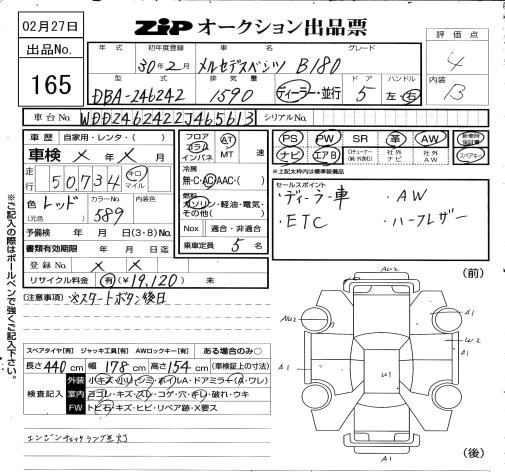 02月27日
出品No.
165
ZIP オークション出品票
評価点
4
内装
B
年式 初年度登録 車名 グレード
30年2月 メルセデスベンツ B180
型式 排気量 ドア ハンドル
DBA-246242 1590 ディーラー・並行 5 左・右
車台No. WDD2462422J465613 シリアルNo.
車歴 自家用・レンタ・( )
車検 × 年 × 月
走行 50,734 キロ マイル
色 (元色) レッド カラーNo. 589 内装色
予備検 年 月 日(3・8)No.
書類有効期限 年 月 日迄
登録No. × ×
リサイクル料金 有(¥19,120) 未
フロア コラム インパネ AT MT 速
冷房 無・C・AC・AAC・( )
燃料 ガソリン・軽油・電気・その他( )
Nox 適合・非適合
乗車定員 5 名
PS PW SR 革 AW 新車時保証書
ナビ エアB 社外ナビ 社外AW スペアキー
※上記太枠内は標準装備品
セールスポイント
・ディーラー車 ・AW
・ETC ・ハーフレザー
(注意事項) ※スタートボタン後日
※ご記入の際はボールペンで強くご記入下さい。
スペアタイヤ[有] ジャッキ工具[有] AWロックキー[有] ある場合のみ○
長さ 440 cm 幅 178 cm 高さ 154 cm (車検証上の寸法)
検査記入
外装 小キズ・小リ・シミ・ホイルA・ドアミラー(A・ワレ)
室内 ヨゴレ・キズ・スレ・コゲ・穴・キレ・破れ・ウキ
FW トビ石・キズ・ヒビ・リペア跡・X要ス
エンジンチェックランプ点灯
(前)
AW2
AW2
A1
A1
W2
A1
U1
A1
A1
(後)